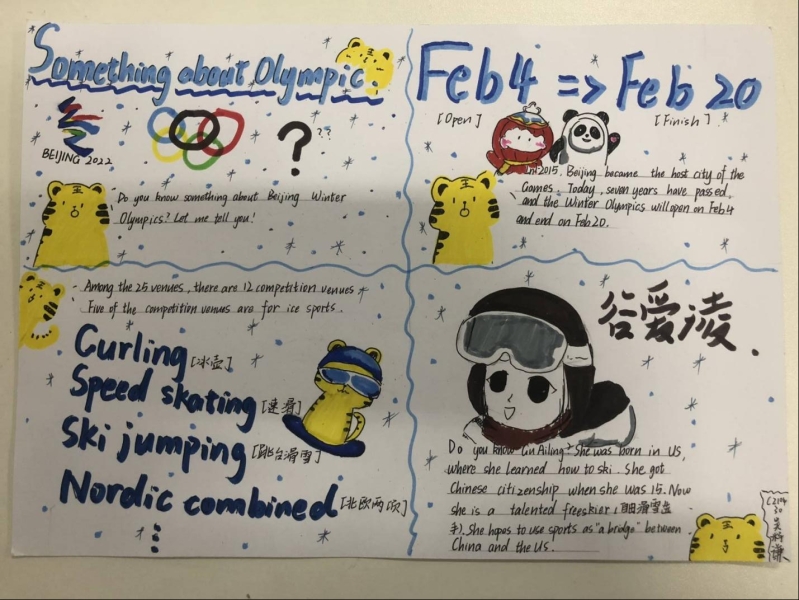 Something about Olympic.
BEIJING 2022
?
??
Do you know something about Beijing Winter
Olympics? Let me tell you!
Feb 4 => Feb 20
[Open]
[Finish]
In 2015, Beijing became the host city of the
Games. Today, seven years have passed,
and the Winter Olympics will open on Feb 4
and end on Feb 20.
Among the 25 venues, there are 12 competition venues
Five of the competition venues are for ice sports.
Curling [冰壶]
Speed skating [速滑]
Ski jumping [跳台滑雪]
Nordic combined [北欧两项]
谷爱凌.
Do you know Gu Ailing? She was born in US,
where she learned how to ski. She got
Chinese citizenship when she was 15. Now
she is a talented freeskier
She hopes to use sports as "a bridge" between
China and the US.